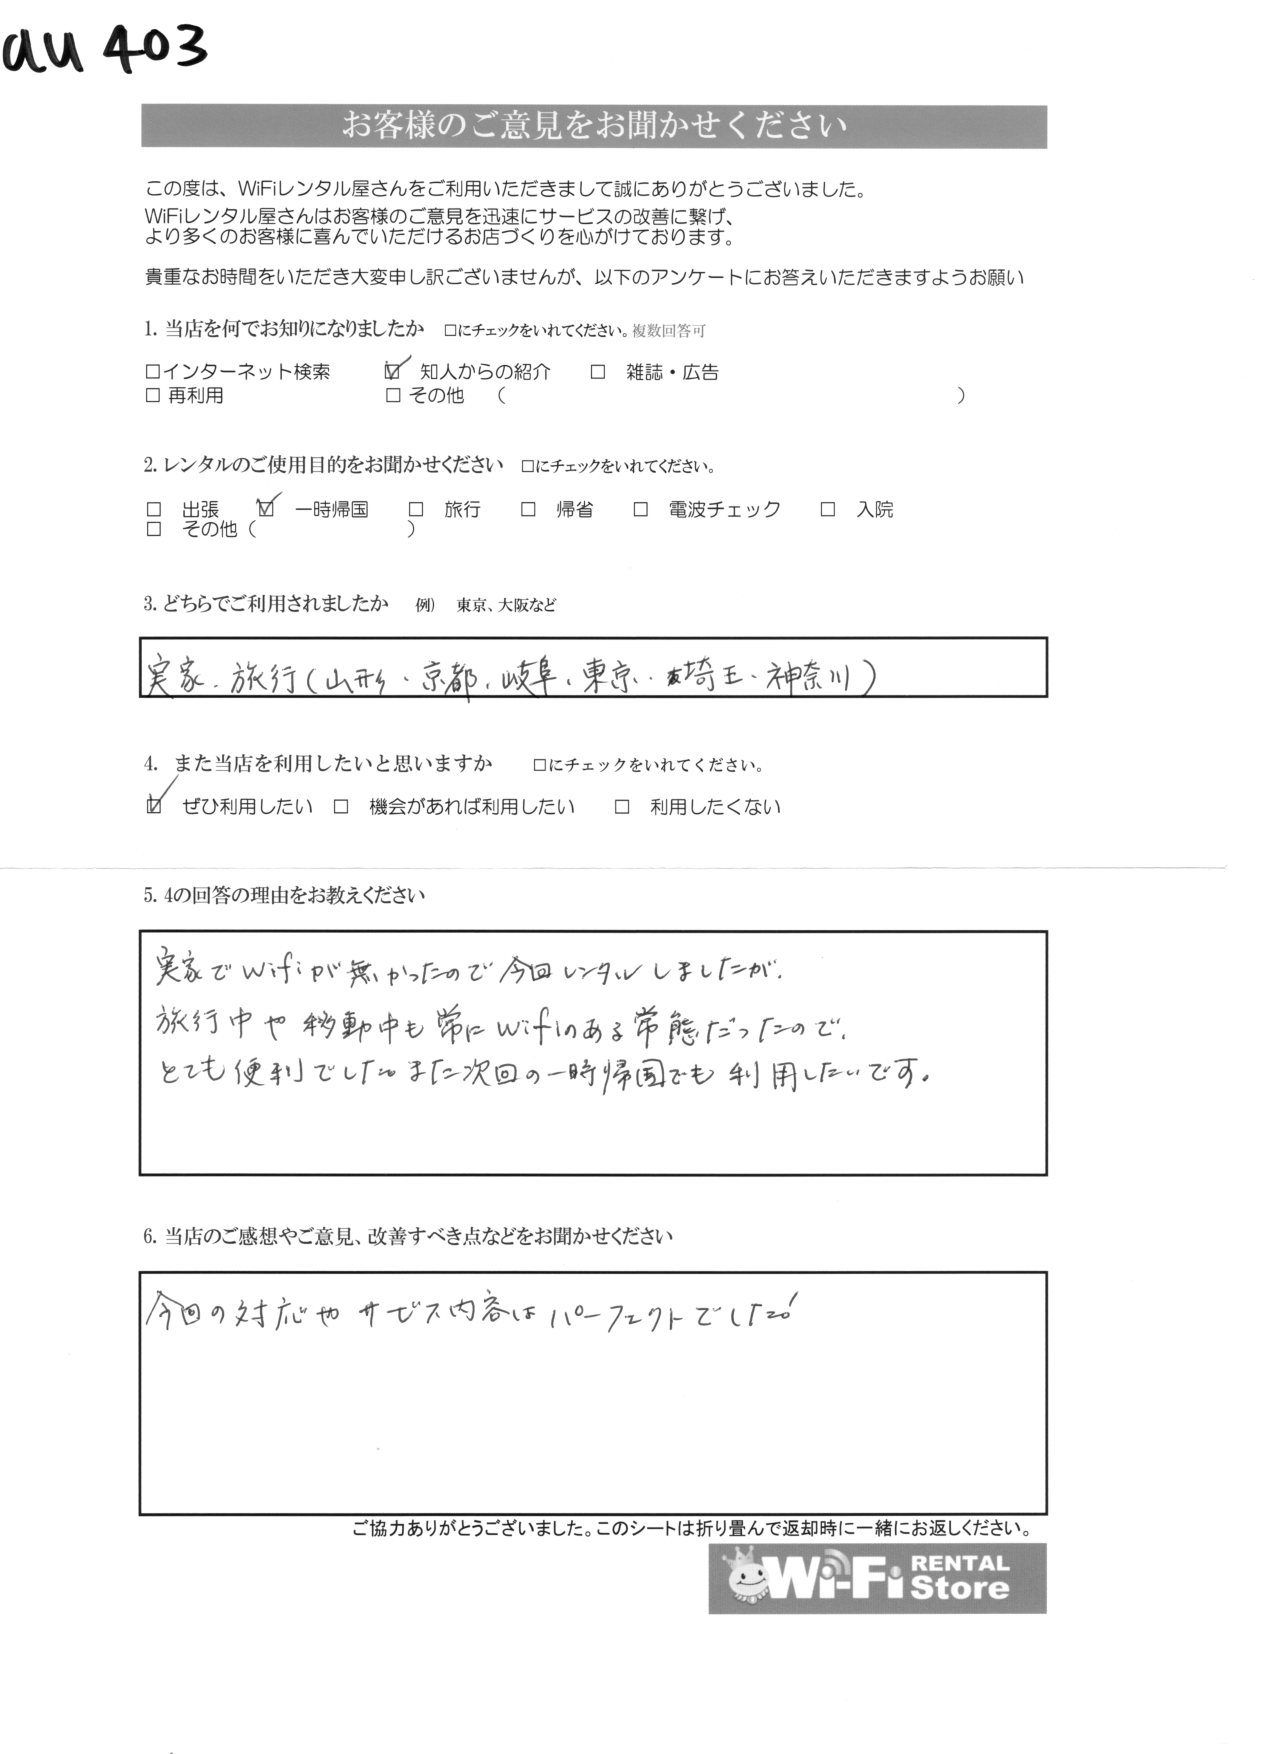 au 403
お客様のご意見をお聞かせください
この度は、WiFiレンタル屋さんをご利用いただきまして誠にありがとうございました。
WiFiレンタル屋さんはお客様のご意見を迅速にサービスの改善に繋げ、
より多くのお客様に喜んでいただけるお店づくりを心がけております。
貴重なお時間をいただき大変申し訳ございませんが、以下のアンケートにお答えいただきますようお願い
1. 当店を何でお知りになりましたか □にチェックをいれてください。複数回答可
□インターネット検索 ☑ 知人からの紹介 □ 雑誌・広告
□ 再利用 □ その他 ( )
2. レンタルのご使用目的をお聞かせください □にチェックをいれてください。
□ 出張 ☑ 一時帰国 □ 旅行 □ 帰省 □ 電波チェック □ 入院
□ その他 ( )
3. どちらでご利用されましたか 例) 東京、大阪など
実家・旅行(山形・京都・岐阜・東京・埼玉・神奈川)
4. また当店を利用したいと思いますか □にチェックをいれてください。
☑ ぜひ利用したい □ 機会があれば利用したい □ 利用したくない
5. 4の回答の理由をお教えください
実家でwifiが無かったので今回レンタルしましたが、
旅行中や移動中も常にwifiのある常態だったので、
とても便利でした。また次回の一時帰国でも利用したいです。
6. 当店のご感想やご意見、改善すべき点などをお聞かせください
今回の対応やサービス内容はパーフェクトでした!
ご協力ありがとうございました。このシートは折り畳んで返却時に一緒にお返しください。
Wi-Fi RENTAL Store